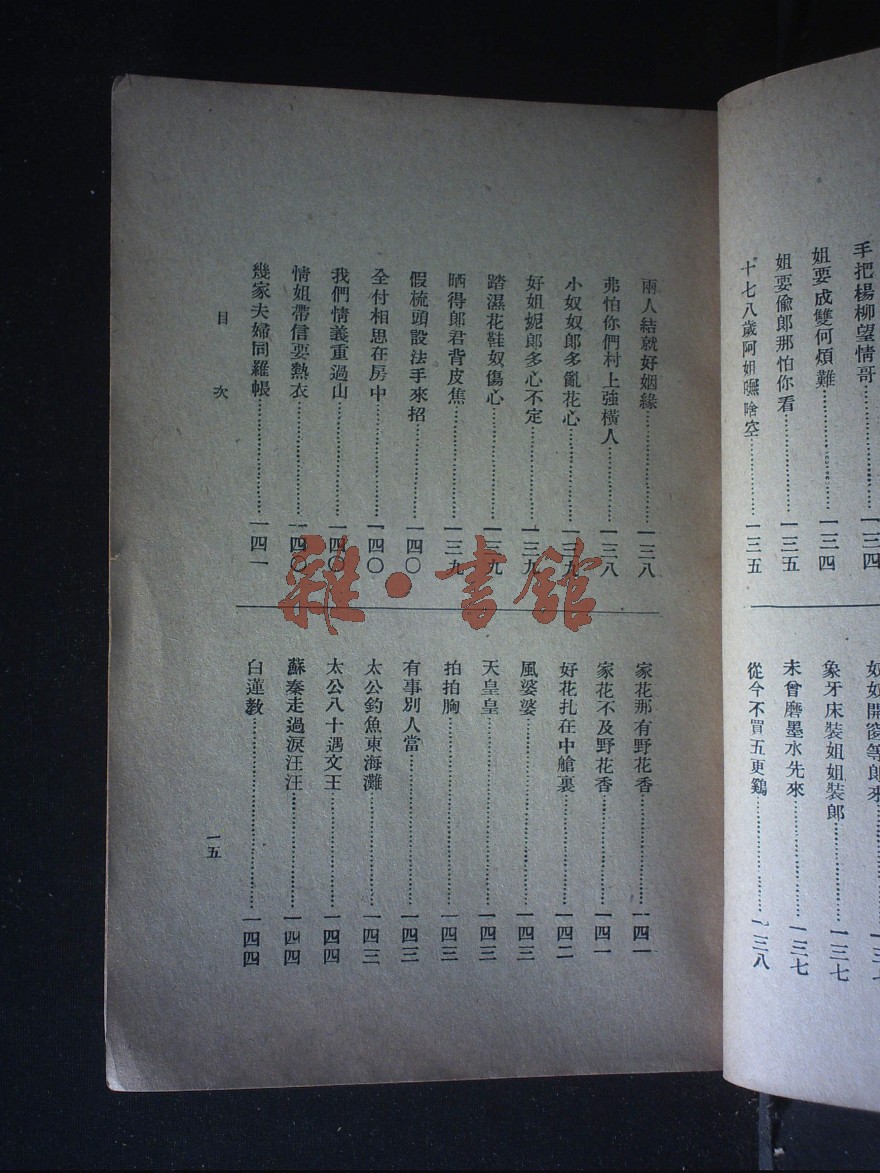 手把楊柳望情哥…………一三四
姐要成雙何煩難…………一三四
姐要偸郞那怕你看…………一三五
十七八歲阿姐嘸啥空…………一三五
奴奴開窗等郞來…………一三七
象牙床裝姐姐裝郞…………一三七
未曾磨墨水先來…………一三七
從今不買五更鷄…………一三八
兩人結就好姻緣…………一三八
弗怕你們村上強橫人…………一三八
小奴奴郞多亂花心…………一三九
好姐妮郞多心不定…………一三九
踏濕花鞋奴傷心…………一三九
晒得郞君背皮焦…………一三九
假梳頭設法手來招…………一四〇
全付相思在房中…………一四〇
我們情義重過山…………一四〇
情姐帶信要熱衣…………一四〇
幾家夫婦同羅帳…………一四一
家花那有野花香…………一四一
家花不及野花香…………一四一
好花扎在中艙裏…………一四二
風婆婆…………一四三
天皇皇…………一四三
拍拍胸…………一四三
有事別人當…………一四三
太公釣魚東海灘…………一四三
太公八十遇文王…………一四四
蘇秦走過淚汪汪…………一四四
白蓮敎…………一四四
目次
一五
雜·書館